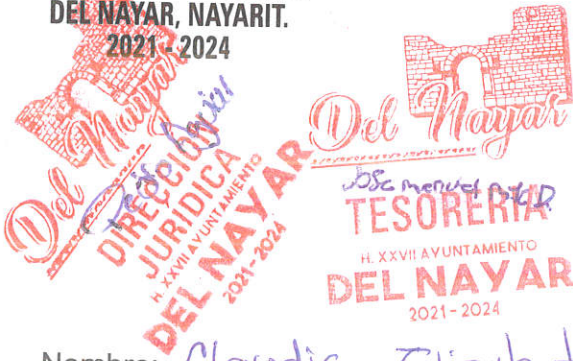 DEL NAYAR, NAYARIT.
2021 - 2024
Del Nayar
DIRECCIÓN
JURIDICA
H. XXVII AYUNTAMIENTO
DEL NAYAR
2021-2024
Del Nayar
José manuel
TESORERÍA
H. XXVII AYUNTAMIENTO
DEL NAYAR
2021-2024
Nombre: Claudia